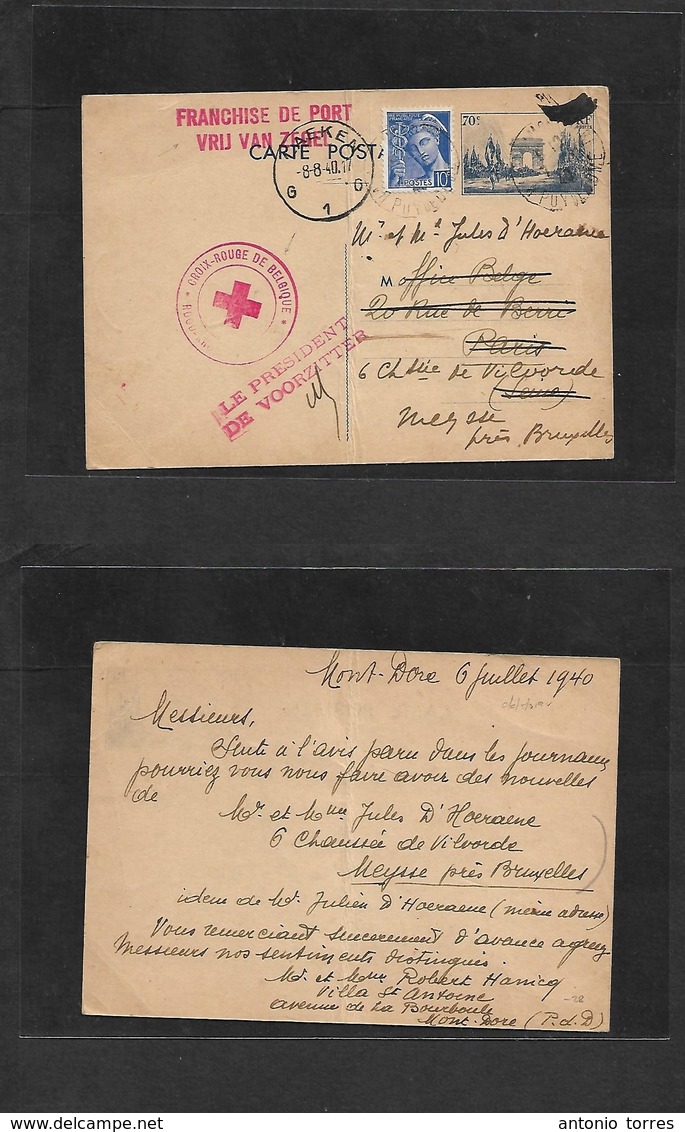 FRANCHISE DE PORT
VRIJ VAN ZEGEL
CARTE POSTA
LAEKEN
-8-8-40.17
G 1 G
POSTES 10c
70c
PUY DE DOME
Mr et Me Jules D'Hoeraene
M office Belge
20 Rue de Berri
Paris
6 Chssée de Vilvorde
(Seine)
Meysse
près Bruxelles
* CROIX-ROUGE DE BELGIQUE *
LE PRESIDENT
DE VOORZITTER
Mont-Dore 6 Juillet 1940
Messieurs,
Suite à l'avis paru dans les journaux
pourriez vous nous faire avoir des nouvelles
de
Mr. et Mme Jules D'Hoeraene
6 Chaussée de Vilvorde
Meysse près Bruxelles
idem de Mr. Julien D'Hoeraene (même adresse)
Vous remerciant sincerement d'avance agreez
Messieurs nos sentiments distingués.
Mr. et Mme Robert Hanicq
Villa St Antoine
avenue de La Bourboule
Mont-Dore (P.d.D)
-28
antonio torres